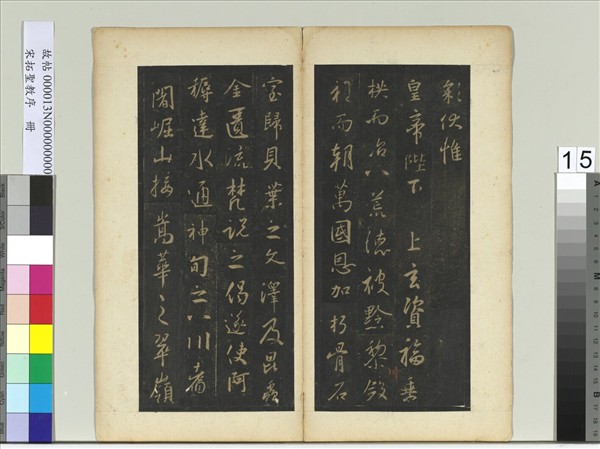 彩伏惟
皇帝陛下 上玄資福垂
拱而治八荒德被黔黎斂
衽而朝萬國恩加朽骨石
室歸貝葉之文澤及昆蟲
金匱流梵說之偈遂使阿
耨達水通神甸之八川耆
闍崛山接嵩華之翠嶺
故帖 000013N000000000
宋拓聖教序 冊
15